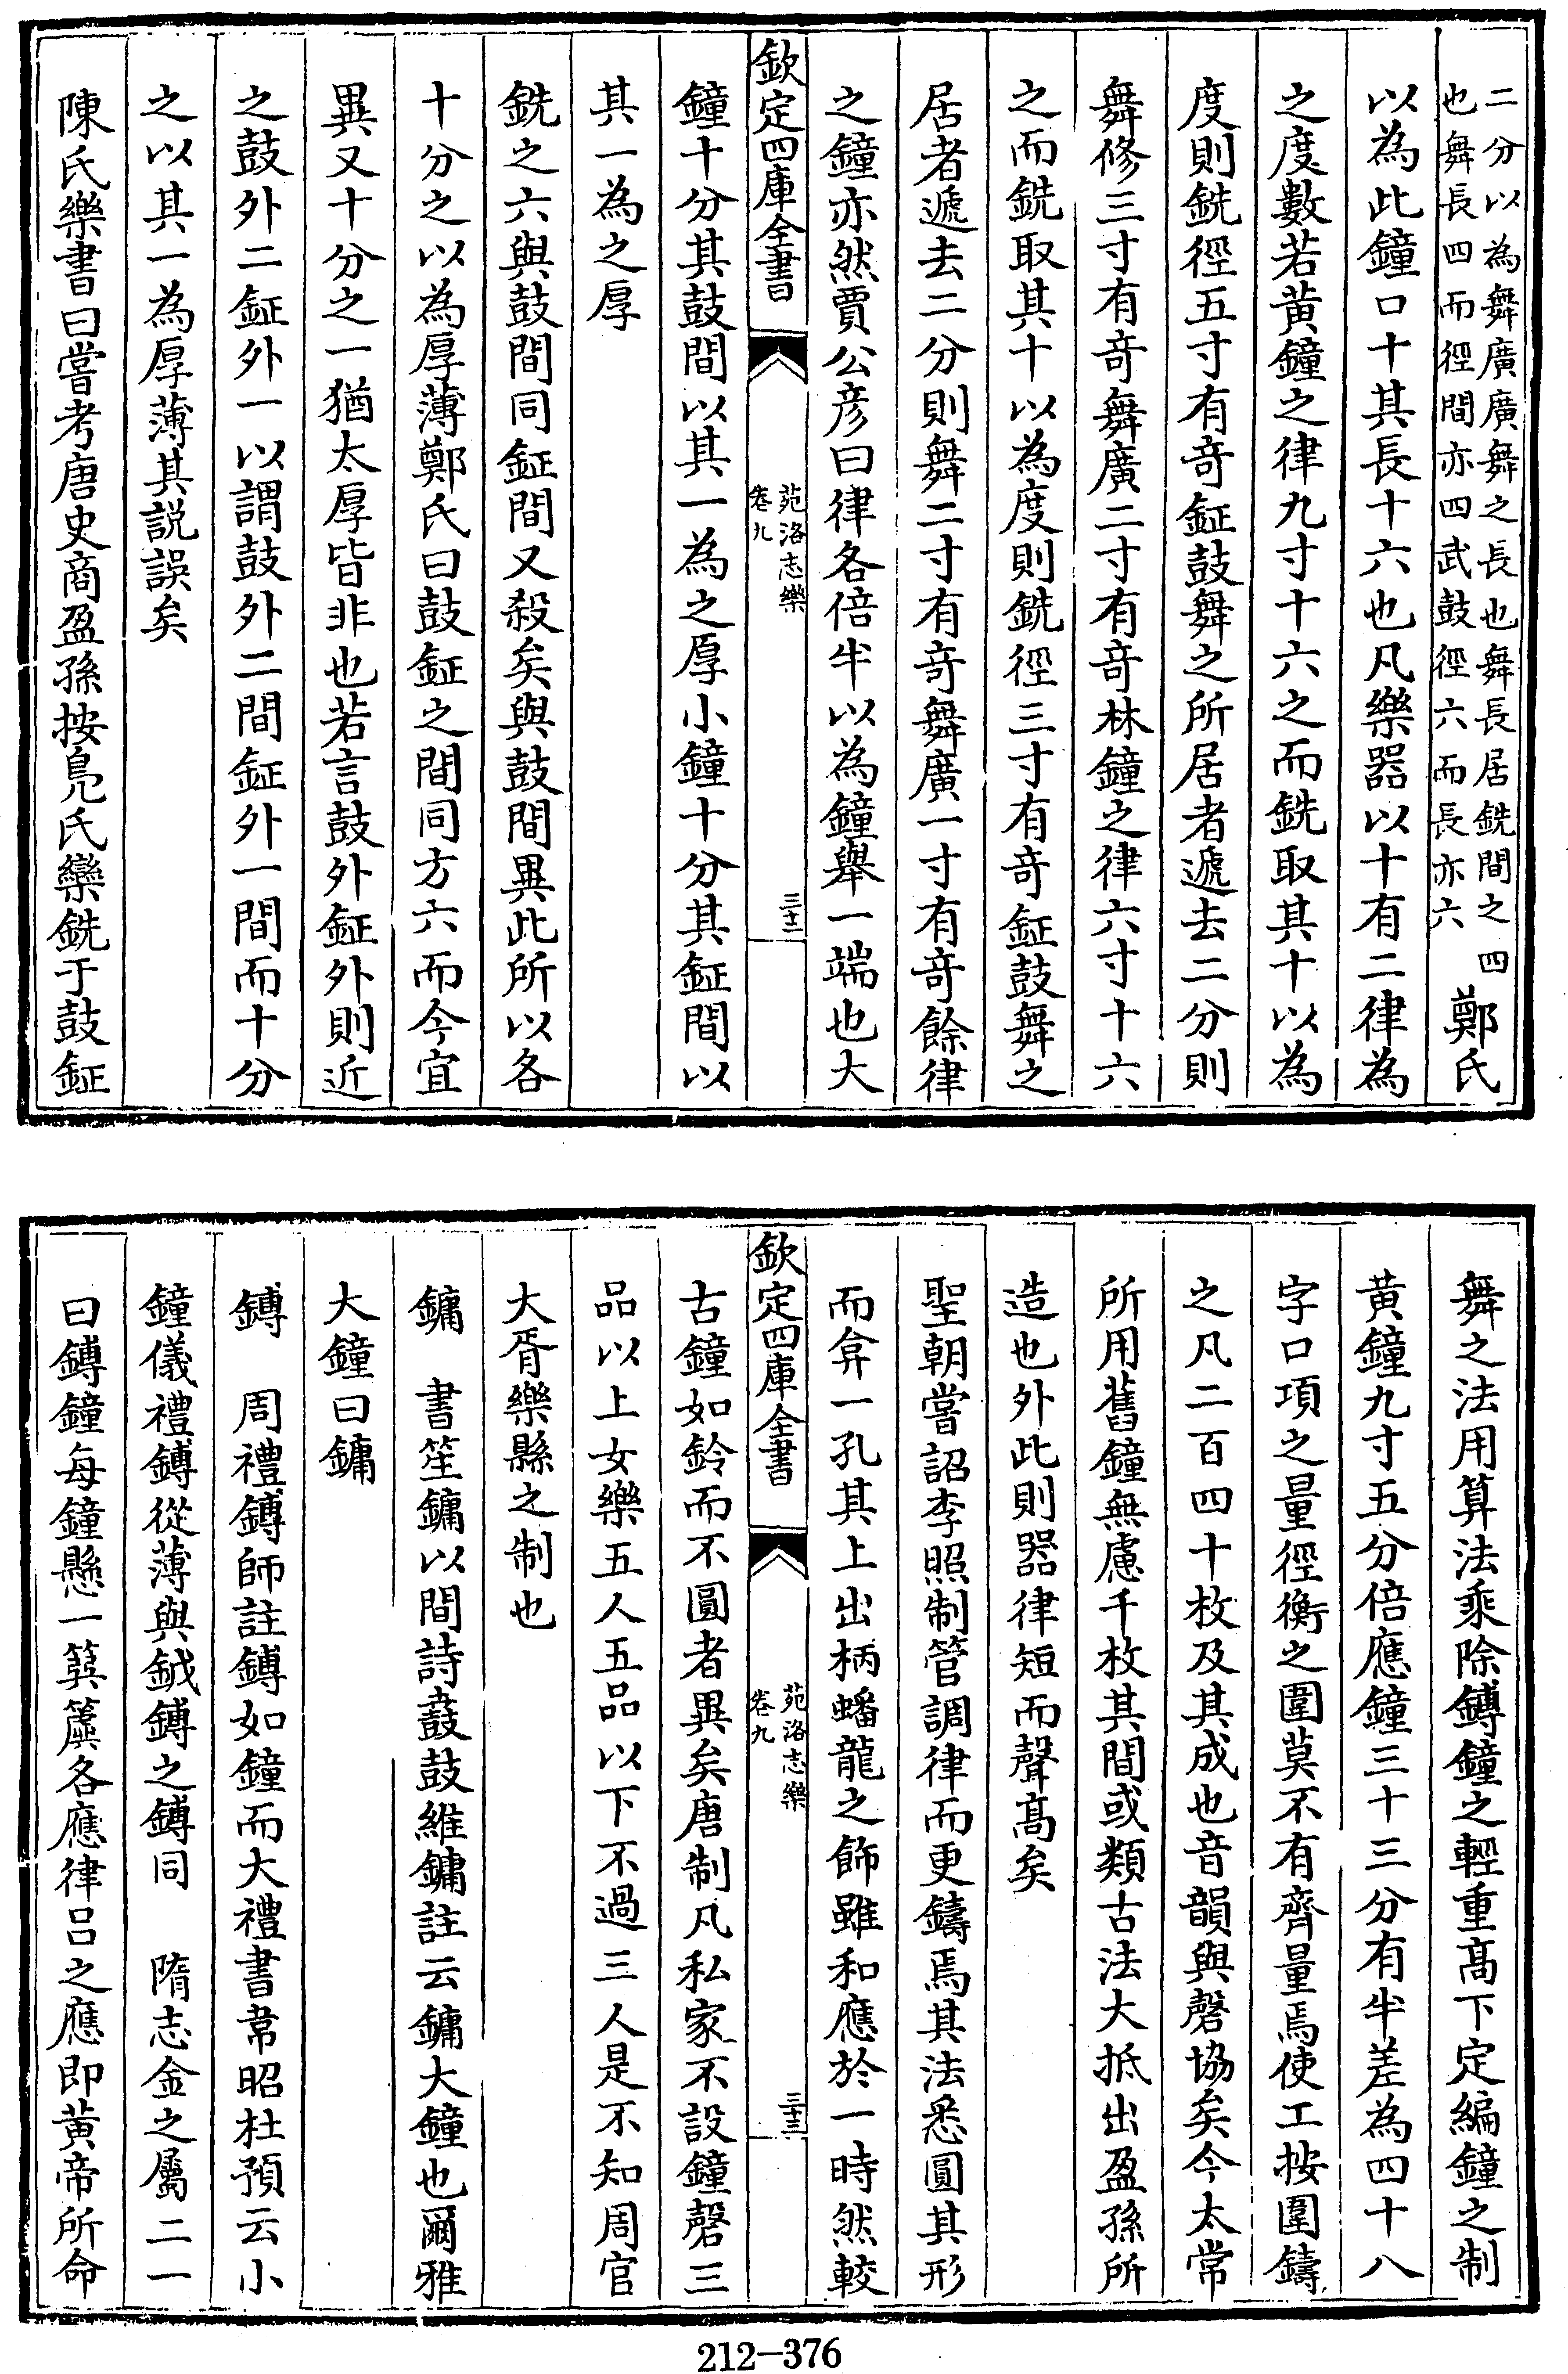 二分以為舞廣廣舞之長也舞長居銑間之四
也舞長四而徑間亦四武鼓徑六而長亦六
鄭氏
以為此鐘口十其長十六也凡樂器以十有二律為
之度數若黄鐘之律九寸十六之而銑取其十以為
度則銑徑五寸有竒鉦鼓舞之所居者遞去二分則
舞修三寸有竒舞廣二寸有竒林鐘之律六寸十六
之而銑取其十以為度則銑徑三寸有竒鉦鼓舞之
居者遞去二分則舞二寸有竒舞廣一寸有竒餘律
之鐘亦然賈公彦曰律各倍半以為鐘舉一端也大
欽定四庫全書
苑洛志樂
卷九
三十二
鐘十分其鼓間以其一為之厚小鐘十分其鉦間以
其一為之厚
銑之六與鼓間同鉦間又殺矣與鼓間異此所以各
十分之以為厚薄鄭氏曰鼓鉦之間同方六而今宜
異又十分之一猶太厚皆非也若言鼓外鉦外則近
之鼓外二鉦外一以謂鼓外二間鉦外一間而十分
之以其一為厚薄其説誤矣
陳氏樂書曰嘗考唐史商盈孫按鳧氏欒銑于鼓鉦
舞之法用算法乘除鎛鐘之輕重髙下定編鐘之制
黄鐘九寸五分倍應鐘三十三分有半差為四十八
字口項之量徑衡之圍莫不有齊量焉使工按圖鑄
之凡二百四十枚及其成也音韻與磬協矣今太常
所用舊鐘無慮千枚其間或類古法大抵出盈孫所
造也外此則器律短而聲髙矣
聖朝嘗詔李照制管調律而更鑄焉其法悉圓其形
而弇一孔其上出柄蟠龍之飾雖和應於一時然較
欽定四庫全書
苑洛志樂
卷九
三十三
古鐘如鈴而不圓者異矣唐制凡私家不設鐘磬三
品以上女樂五人五品以下不過三人是不知周官
大胥樂縣之制也
鏞　書笙鏞以間詩鼖鼓維鏞註云鏞大鐘也爾雅
大鐘曰鏞
鎛　周禮鎛師註鎛如鐘而大禮書韋昭杜預云小
鐘儀禮鎛從薄與鉞鎛之鎛同　隋志金之屬二一
曰鎛鐘每鐘懸一簨簴各應律呂之應即黄帝所命
212—376